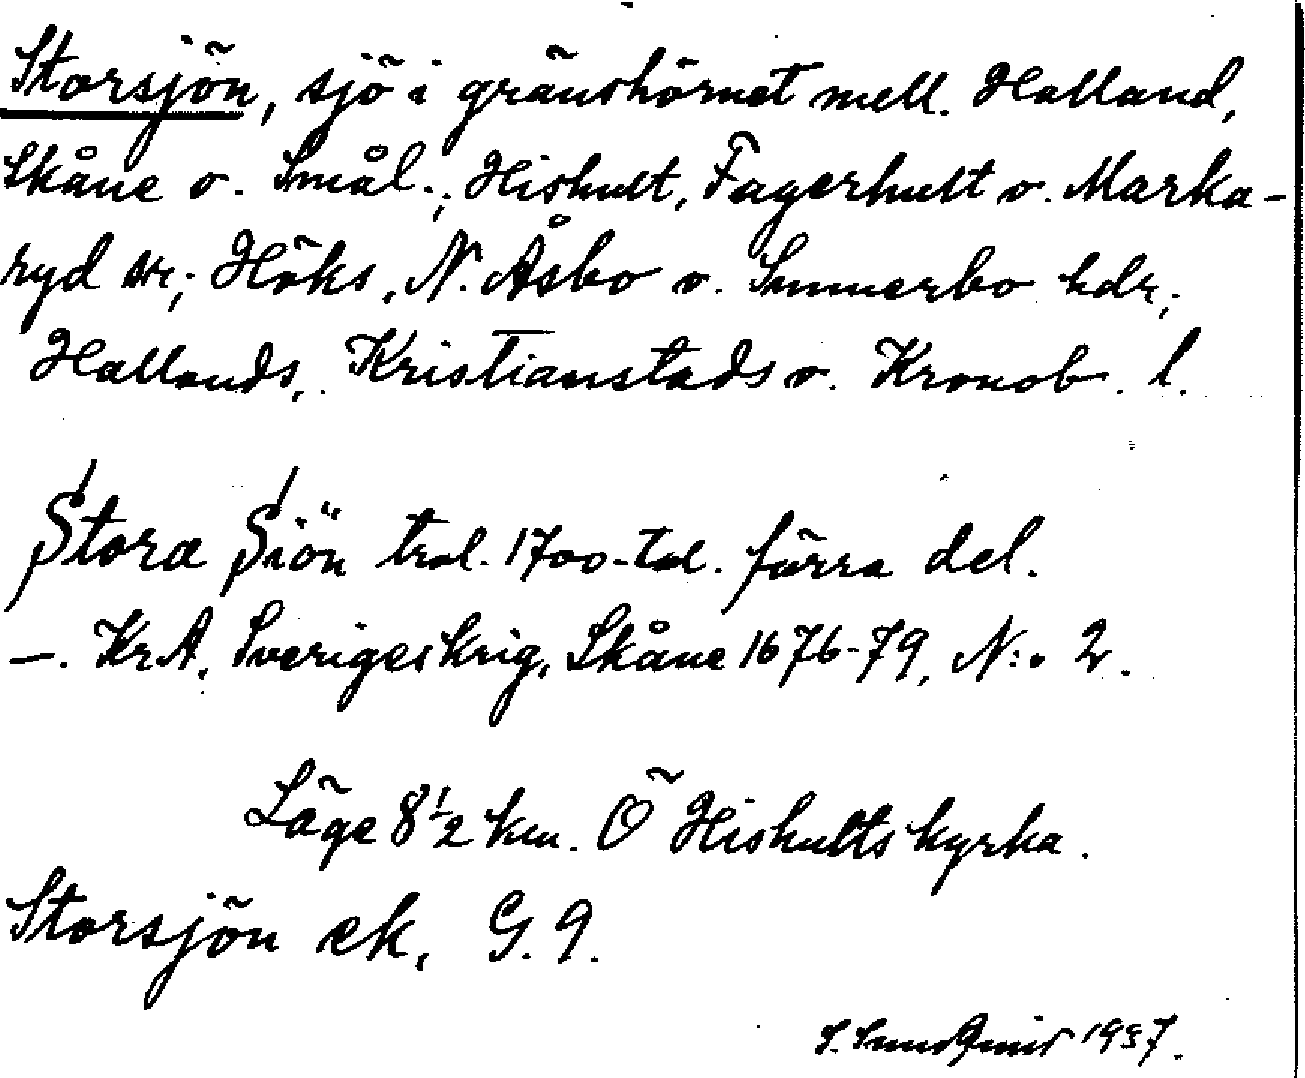 Storsjön, sjö i gränshörnet mell. Halland,
Skåne o. Smål.; Hishult, Fagerhult o. Marka-
ryd snr; Höks, N. Åsbo o. Sunnerbo hdr;
Hallands, Kristianstads o. Kronob. l.
Stora Siön trol. 1700-tal. förra del.
—. KrA, Sveriges krig, Skåne 1676-79, N:o 2.
Läge 8 1/2 km. Ö Hishults kyrka.
Storsjön ek, G. 9.
1937.